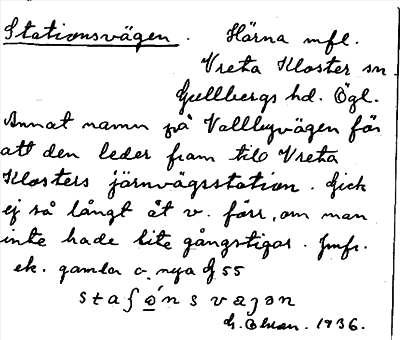 Stationsvägen. Härna mfl.
Vreta Kloster sn.
Gullbergs hd. Ögl.
Annat namn på Vallbyvägen för
att den leder fram till Vreta
Klosters järnvägsstation. Gick
ej så långt åt v. förr, om man
inte hade lite gångstigar. Jmfr.
ek. gamla o. nya G 55
staʃo̲'nsvæʒən
G. Ohlson. 1936.